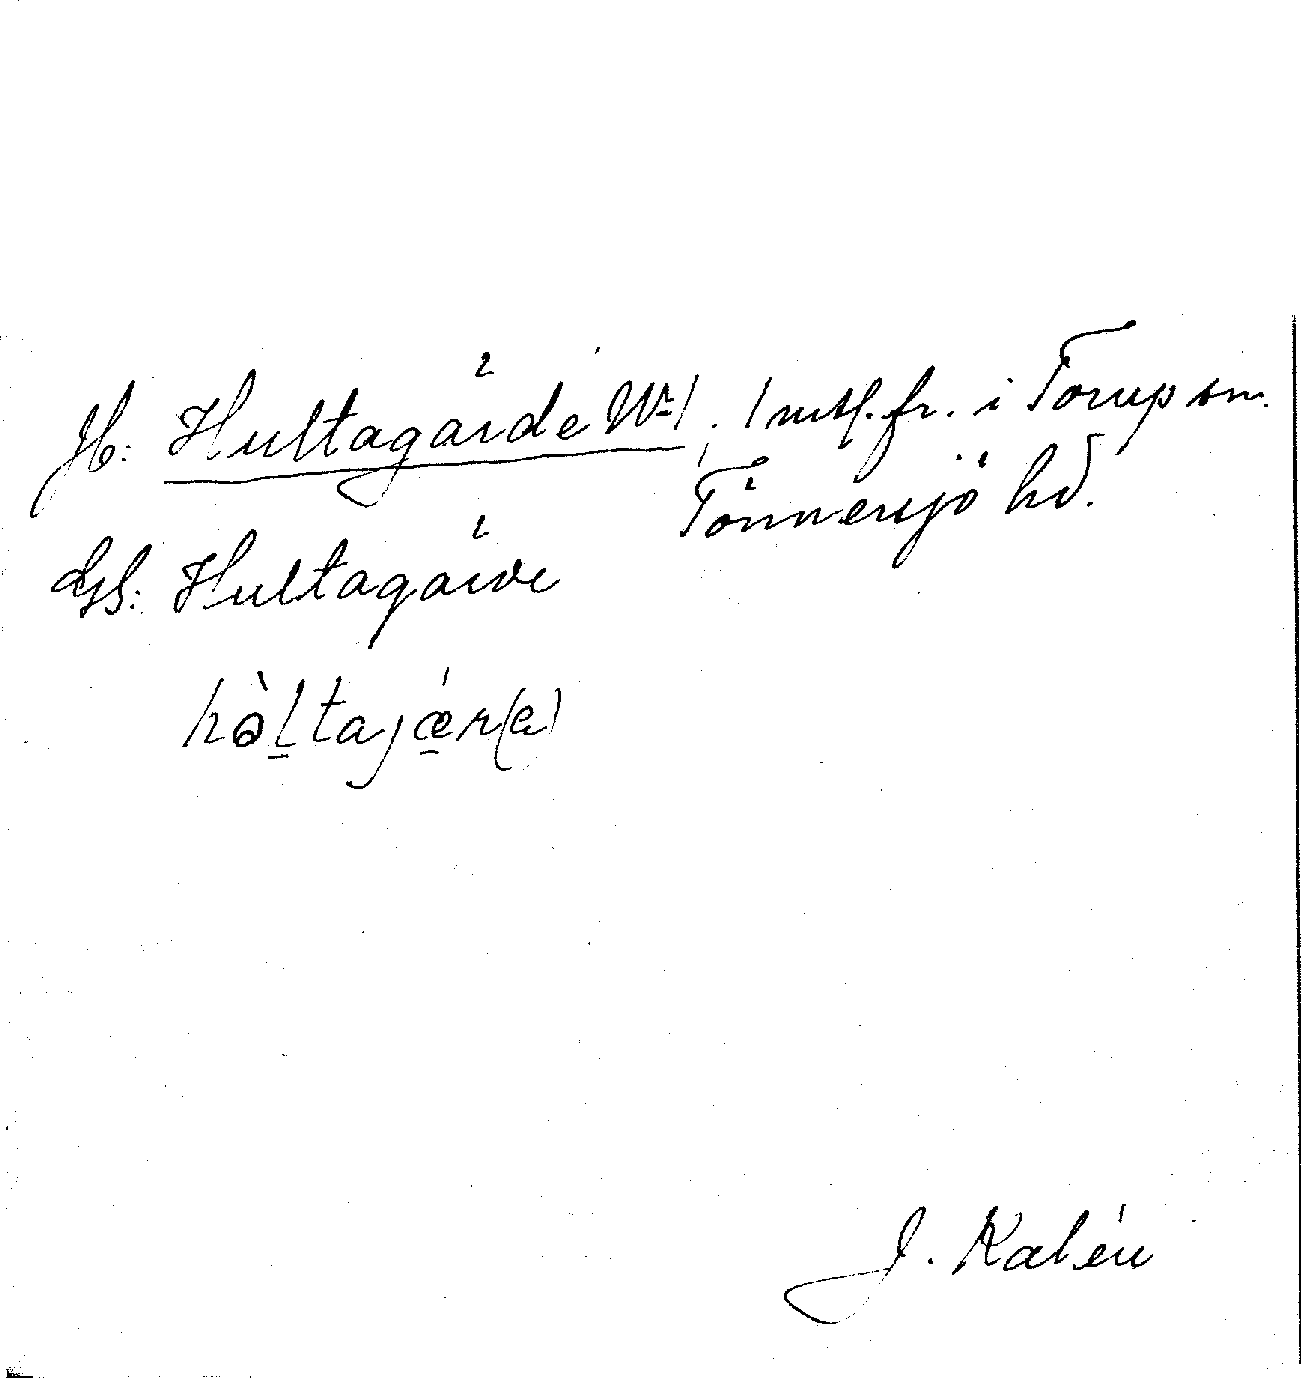 Jb: Hultagärde Nr 1, 1 mtl. fr. i Torup sn.
Tönnersjö hd.
Gs: Hultagärde
hòltajǽr(e)
J. Kalén